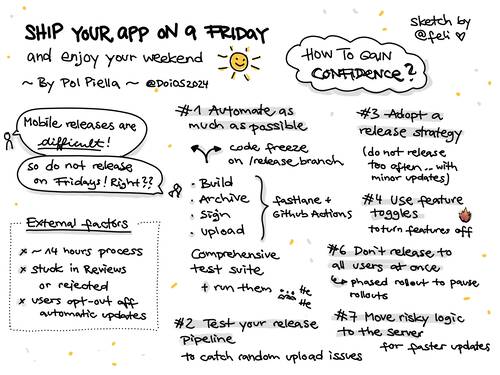 SHIP YOUR APP ON A FRIDAY
and enjoy your weekend
~ By Pol Piella ~ @DoiOS2024
sketch by
@feli ♡
HOW TO GAIN
CONFIDENCE?
Mobile releases are
difficult!
so do not release
on Fridays! Right??
External factors
x ~14 hours process
x stuck in Reviews
or rejected
x users opt-out off
automatic updates
#1 Automate as
much as possible
code freeze
on /release branch
· Build
· Archive
· Sign
· upload
fastlane +
Github Actions
Comprehensive
test suite
+ run them
#2 Test your release
pipeline
to catch random upload issues
#3 Adopt a
release strategy
(do not release
too often... with
minor updates)
#4 Use feature
toggles
to turn features off
#6 Don't release to
all users at once
↳ phased rollout to pause
rollouts
#7 Move risky logic
to the server
for faster updates